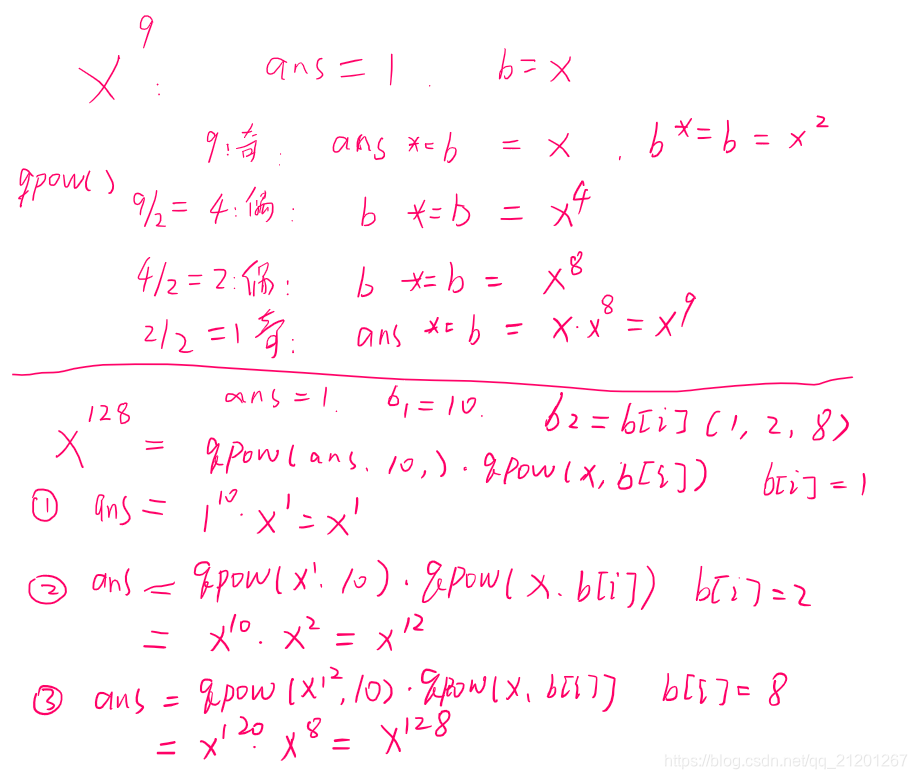 x^9 : ans = 1 . b = x
9:奇: ans *= b = x . b *= b = x^2
qpow()
9/2 = 4:偶: b *= b = x^4
4/2 = 2:偶: b *= b = x^8
2/2 = 1 奇: ans *= b = x·x^8 = x^9
ans = 1. b₁ = 10. b₂ = b[i] (1, 2, 8)
x^128 = qpow(ans, 10,)·qpow(x, b[i]) b[i] = 1
① ans = 1^10·x^1 = x^1
② ans = qpow(x^1, 10)·qpow(x, b[i]) b[i] = 2
= x^10·x^2 = x^12
③ ans = qpow(x^12, 10)·qpow(x, b[i]] b[i] = 8
= x^120·x^8 = x^128
https://blog.csdn.net/qq_21201267